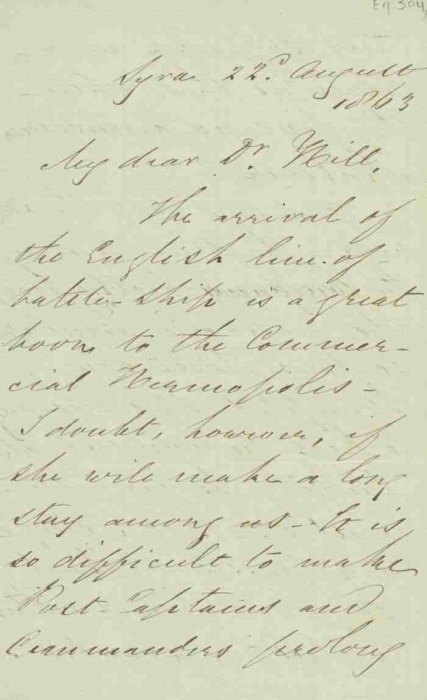 En.304,
Syra 22d. August
1863
My dear Dr. Hill,
The arrival of
the English line-of-
batele-ship is a great
boon to the Commer-
cial Hermopolis-
I doubt, however, if
she will make a long
stay among us- It is
so difficult to make
Post-Captains and
Commanders prolong